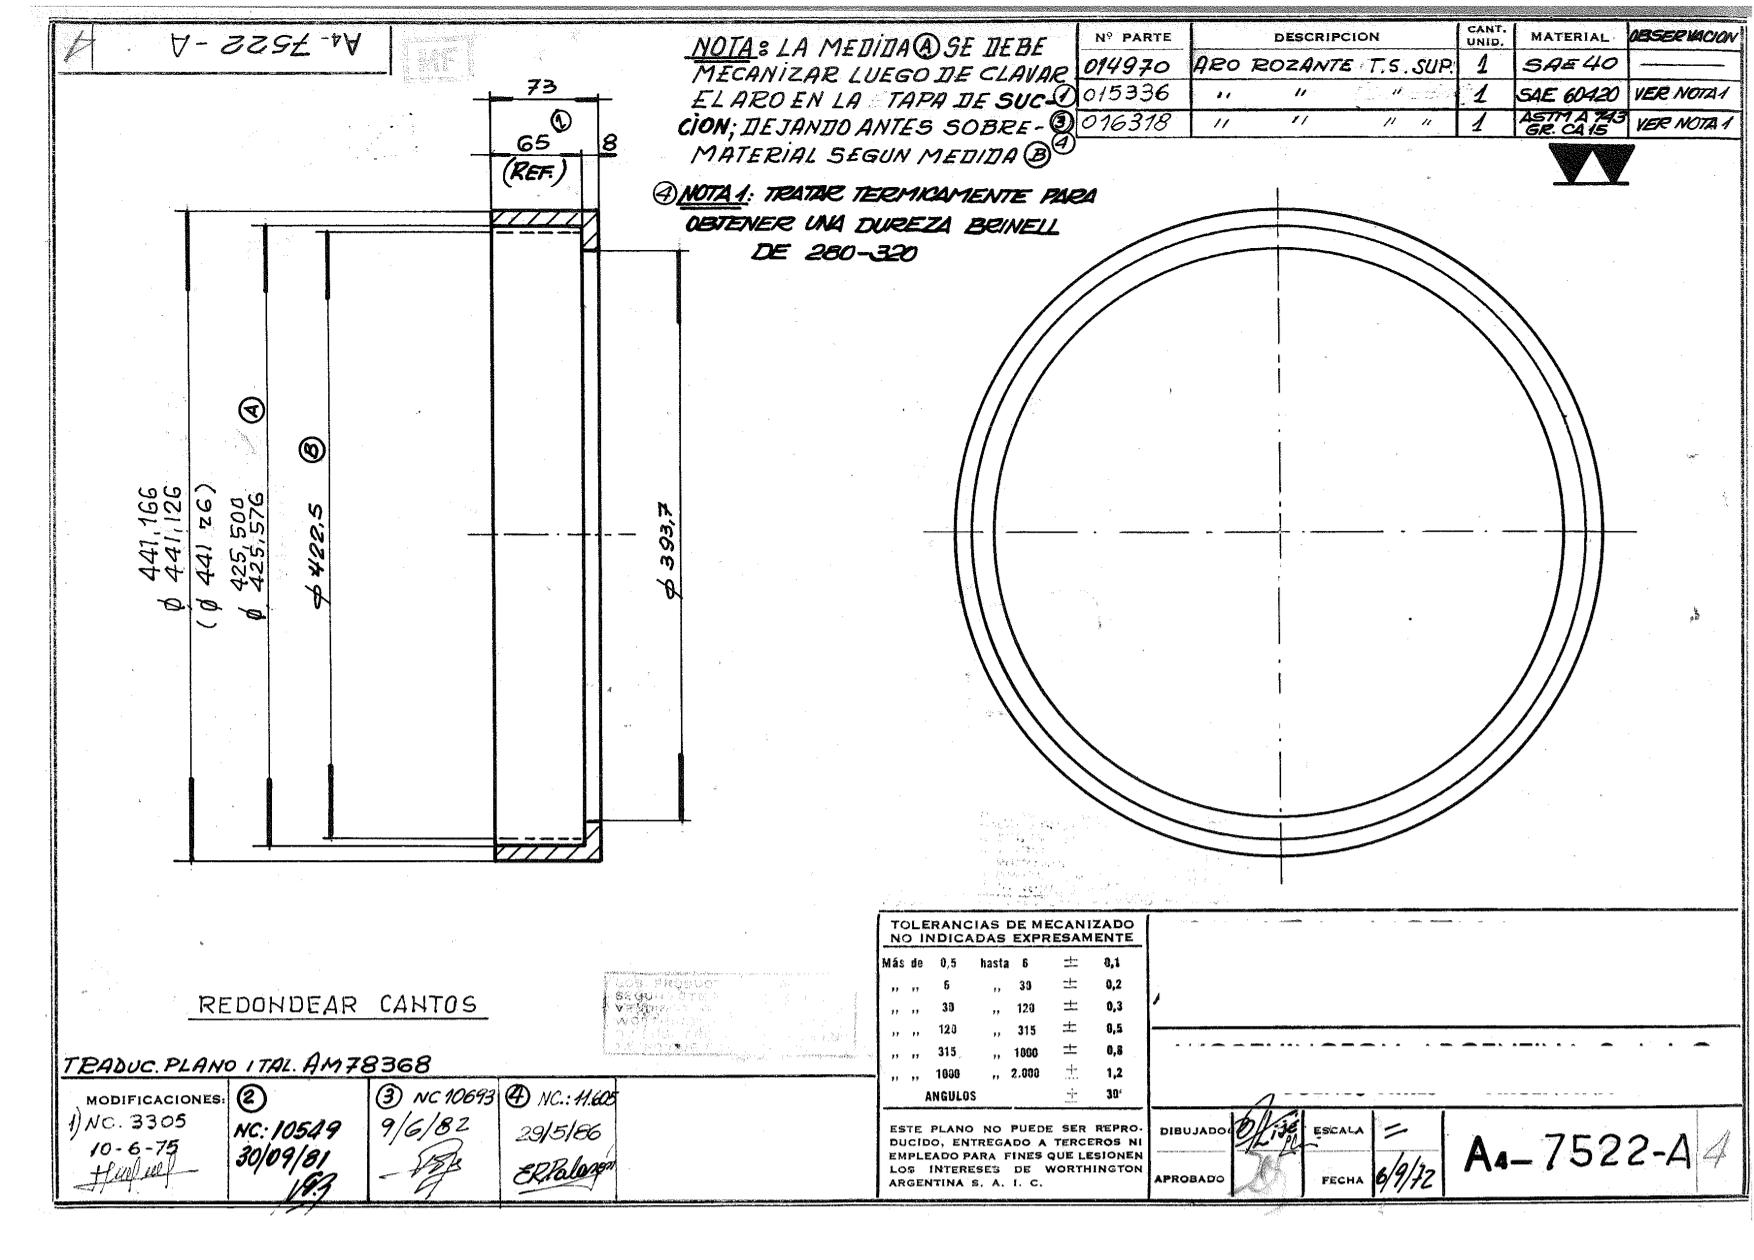 A4- 7522-A
4
MF
NOTA: LA MEDIDA (A) SE DEBE
MECANIZAR LUEGO DE CLAVAR
EL ARO EN LA TAPA DE SUC-
CION; DEJANDO ANTES SOBRE-
MATERIAL SEGUN MEDIDA (B)
(4) NOTA 1: TRATAR TERMICAMENTE PARA
OBTENER UNA DUREZA BRINELL
DE 280-320
Nº PARTE DESCRIPCION CANT. UNID. MATERIAL OBSERVACION
014970 ARO ROZANTE T.S. SUP. 1 SAE 40 ——
(1) 015336 " " " 1 SAE 60420 VER NOTA 1
(3) 016318 " " " " 1 ASTM A 743 GR. CA 15 VER NOTA 1
(4)
73
(2)
65
(REF.)
8
441,166
ϕ 441,126
(ϕ 441 z6)
425,500
ϕ 425,576
(A)
ϕ 422,5
(B)
ϕ 393,7
REDONDEAR CANTOS
TRADUC. PLANO ITAL. AM78368
MODIFICACIONES:
1) NC. 3305
10-6-75
(2)
NC: 10549
30/09/81
(3) NC 10693
9/6/82
(4) NC.: 11.605
29/5/86
TOLERANCIAS DE MECANIZADO
NO INDICADAS EXPRESAMENTE
Más de 0,5 hasta 6 ± 0,1
,, ,, 6 ,, 30 ± 0,2
,, ,, 30 ,, 120 ± 0,3
,, ,, 120 ,, 315 ± 0,5
,, ,, 315 ,, 1000 ± 0,8
,, ,, 1000 ,, 2.000 ± 1,2
ANGULOS ± 30'
ESTE PLANO NO PUEDE SER REPRO-
DUCIDO, ENTREGADO A TERCEROS NI
EMPLEADO PARA FINES QUE LESIONEN
LOS INTERESES DE WORTHINGTON
ARGENTINA S. A. I. C.
DIBUJADO
ESCALA
APROBADO
FECHA 6/9/72
A4-7522-A 4